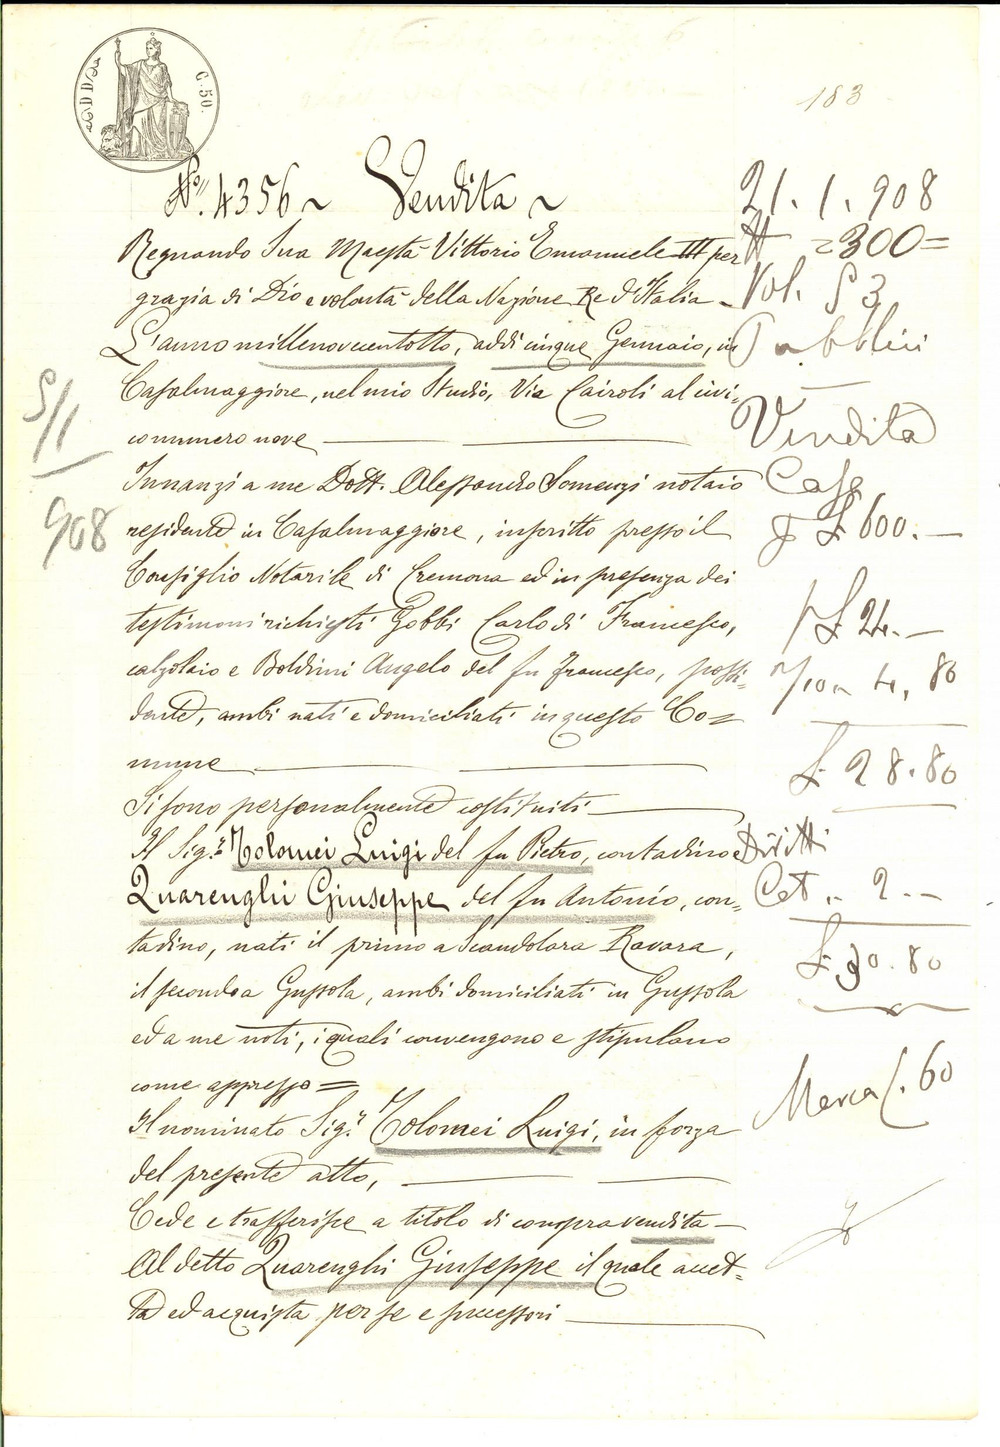 C. 50.
183
N.° 4356 ~ Vendita ~
Regnando Sua Maestà Vittorio Emanuele III per
grazia di Dio e volontà della Nazione Re d'Italia
L'anno millenovecentotto, addì cinque Gennaio, in
Casalmaggiore, nel mio Studio, Via Cairoli al civi=
co numero nove
Innanzi a me Dott. Alessandro Somenzi notaio
residente in Casalmaggiore, inscritto presso il
Consiglio Notarile di Cremona ed in presenza dei
testimoni richiesti Gobbi Carlo di Francesco,
calzolaio e Boldrini Angelo del fu Francesco, possi=
dente, ambi nati e domiciliati in questo Co=
mune
Si sono personalmente costituiti
Il Sig.r Tolomei Luigi del fu Pietro, contadino e
Quarenghi Giuseppe del fu Antonio, con=
tadino, nati il primo a Scandolara Ravara,
il secondo a Gussola, ambi domiciliati in Gussola
ed a me noti, i quali convengono e stipulano
come appresso =
Il nominato Sig.r Tolomei Luigi, in forza
del presente atto,
Cede e trasferisce a titolo di compravendita
Al detto Quarenghi Giuseppe il quale accet=
ta ed acquista per se e successori
5/1
908
21. 1. 908
N =300=
Vol. 53
Pubblici
Vendita
Casa
£ 600.—
£ 24.—
4,80
£ 28.80
Diritti
Cat. 2.—
£ 30.80
Marca £. 60